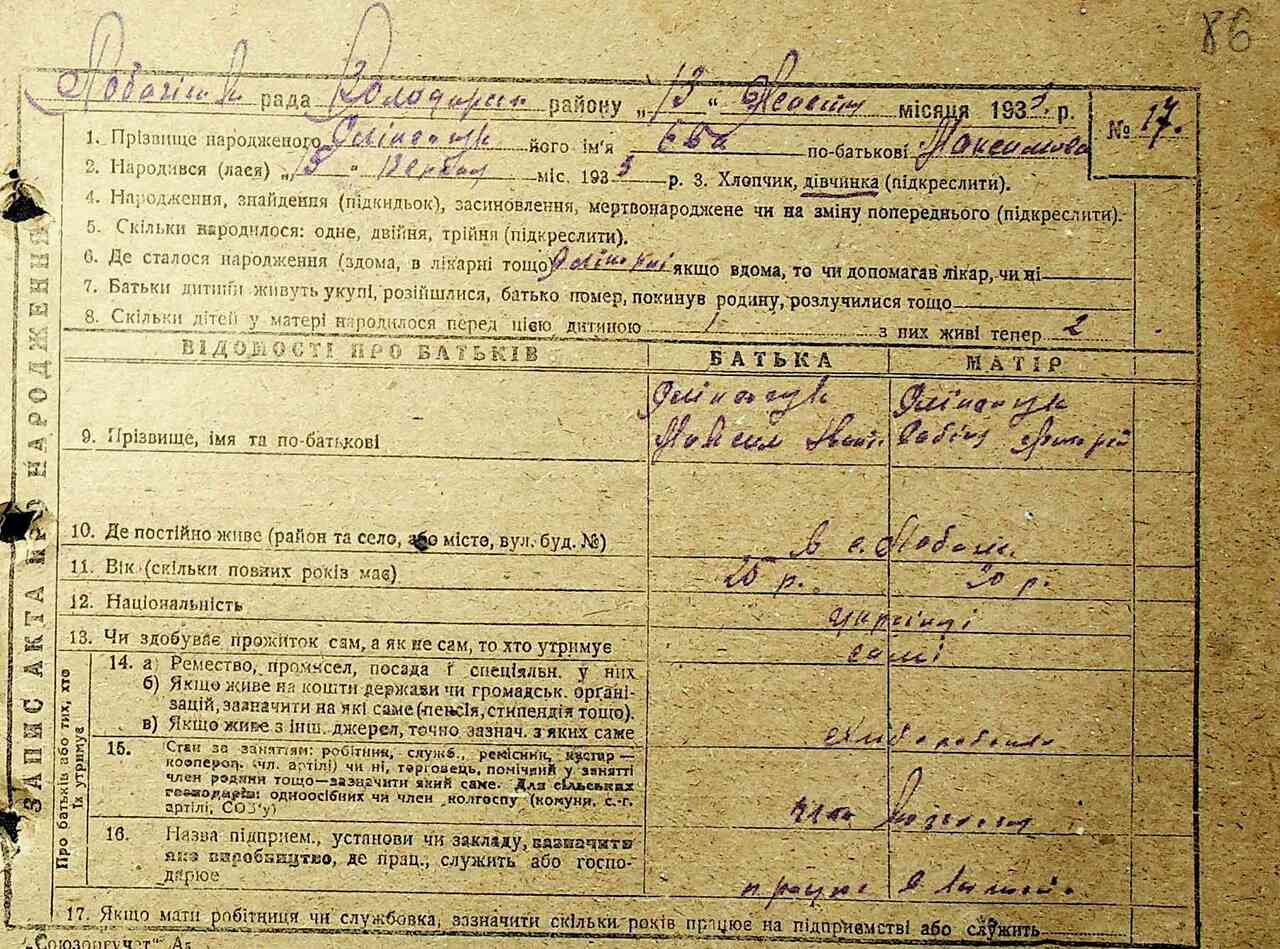 86
рада Володарськ району „13" Жовтня місяця 1933 р. № 17.
1. Прізвище народженого його ім'я Єва по-батькові Максимова
2. Народився (лася) „13" міс. 1933 р. 3. Хлопчик, дівчинка (підкреслити).
4. Народження, знайдення (підкидьок), засиновлення, мертвонароджене чи на зміну попереднього (підкреслити).
5. Скільки народилося: одне, двійня, трійня (підкреслити).
6. Де сталося народження (здома, в лікарні тощо) якщо вдома, то чи допомагав лікар, чи ні
7. Батьки дитини живуть укупі, розійшлися, батько помер, покинув родину, розлучилися тощо
8. Скільки дітей у матері народилося перед цією дитиною 1 з них живі тепер 2
ВІДОМОСТІ ПРО БАТЬКІВ БАТЬКА МАТІР
9. Прізвище, імя та по-батькові Максим Іван
10. Де постійно живе (район та село, або місто, вул. буд. №) в с.
11. Вік (скільки повних років має) 25 р. 20 р.
12. Національність українці
13. Чи здобуває прожиток сам, а як не сам, то хто утримує самі
14. а) Ремество, промисел, посада ґ спеціяльн. у них
б) Якщо живе на кошти держави чи громадськ. орґані-
зацій, зазначити на які саме (пенсія, стипендія тощо).
в) Якщо живе з інш. джерел, точно зазнач. з яких саме
15. Стан за заняттям: робітник, служб., ремісник, кустар—
коопероп. (чл. артілі) чи ні, торговець, помічний у занятті
член родини тощо—зазначити який саме. Для сільських
господарів: одноосібних чи член колгоспу (комуни, с.-г.
артілі, СОЗ'у)
16. Назва підприєм., установи чи закладу, зазначити
яке виробництво, де прац., служить або госпо-
дарює працює в
17. Якщо мати робітниця чи службовка, зазначити скільки років працює на підприємстві або служить
ЗАПИС АКТА ПРО НАРОДЖЕННЯ
Про батьків або тих, хто
їх утримує
„Союзоргучет"